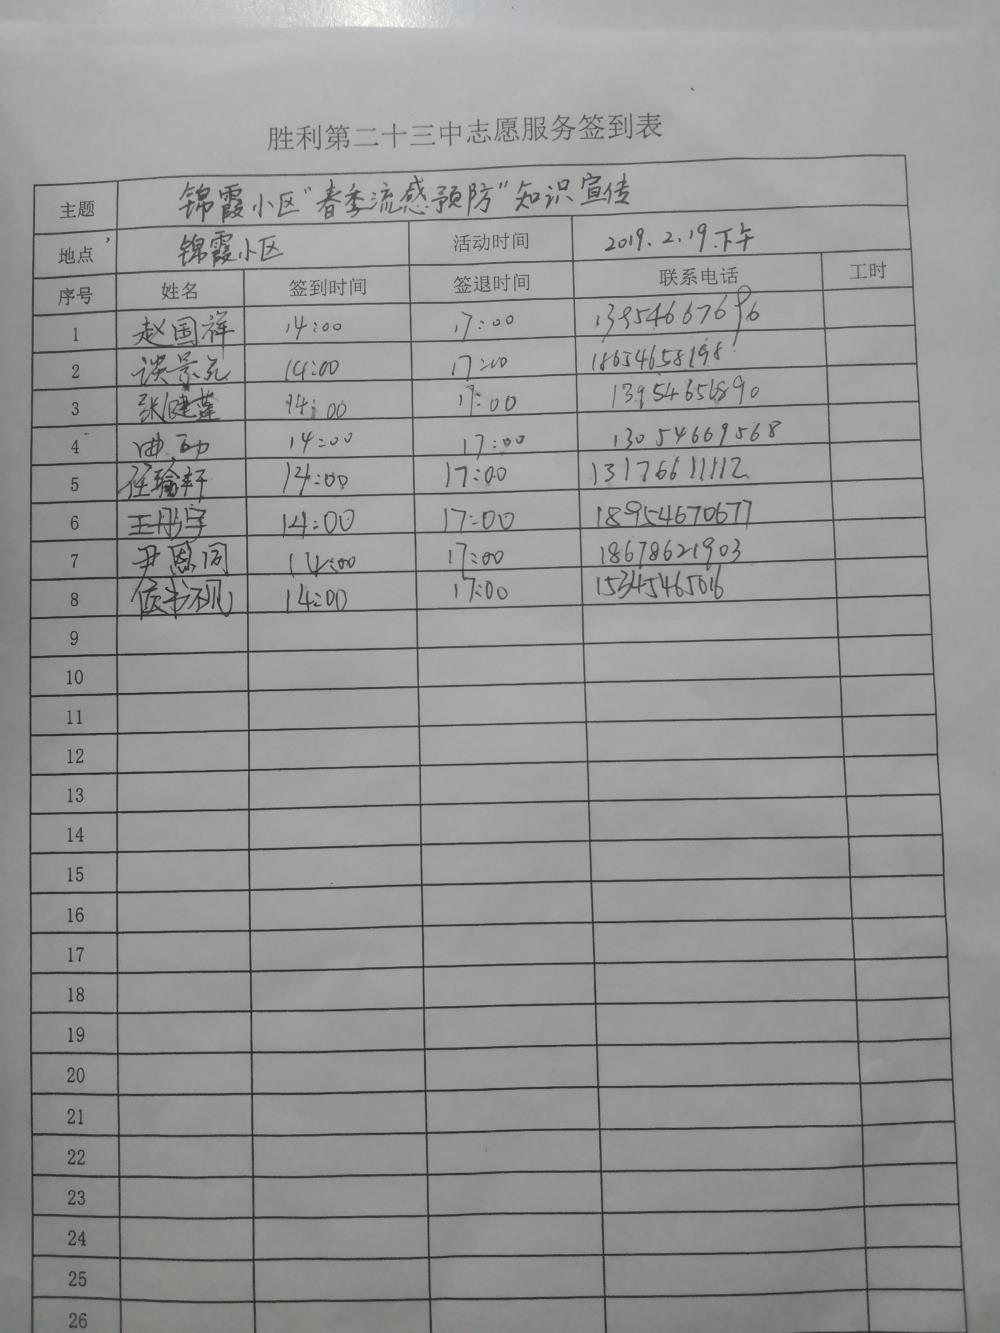 胜利第二十三中志愿服务签到表
主题 锦霞小区"春季流感预防"知识宣传
地点 锦霞小区 活动时间 2019.2.19.下午
序号 姓名 签到时间 签退时间 联系电话 工时
1 赵国祥 14:00 17:00 13954667696
2 谈景元 14:00 17:00 18654658198
3 张健莲 14:00 17:00 13954656890
4 曲 14:00 17:00 13054669568
5 任瑜轩 14:00 17:00 13176611112
6 王彤宇 14:00 17:00 18954670677
7 尹恩同 14:00 17:00 18678621903
8 14:00 17:00 15345465016
9
10
11
12
13
14
15
16
17
18
19
20
21
22
23
24
25
26